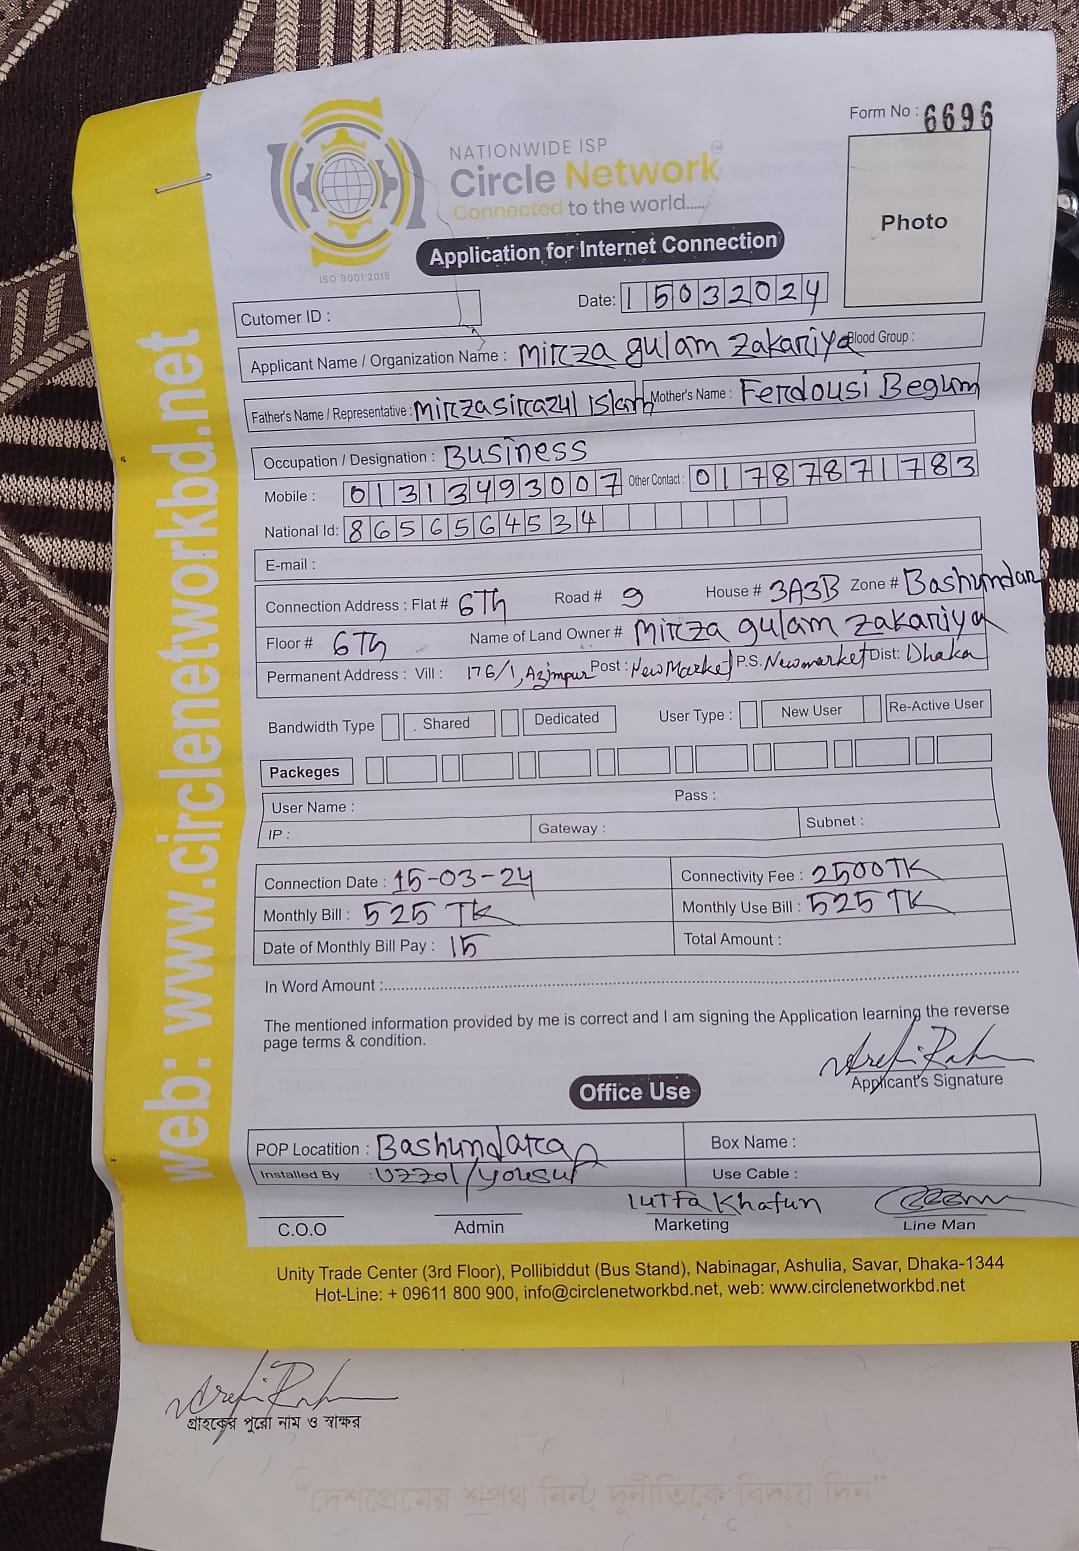 Form No : 6696
NATIONWIDE ISP
Circle Network™
Connected to the world.....
ISO 9001:2015
Photo
Application for Internet Connection
Cutomer ID :
Date: 15032024
Applicant Name / Organization Name : Mirza gulam Zakariya Blood Group :
Father's Name / Representative : Mirza Sirazul Islam Mother's Name : Ferdousi Begum
Occupation / Designation : Business
Mobile : 01313493007 Other Contact : 01787871783
National Id: 8656564534
E-mail :
Connection Address : Flat # 6Th Road # 9 House # 3A3B Zone # Bashundara
Floor # 6Th Name of Land Owner # Mirza gulam Zakariya
Permanent Address : Vill : 176/1, Azimpur Post : New Market P.S. Newmarket Dist: Dhaka
Bandwidth Type Shared Dedicated User Type : New User Re-Active User
Packeges
User Name : Pass :
IP : Gateway : Subnet :
Connection Date : 15-03-24 Connectivity Fee : 2500 TK
Monthly Bill : 525 TK Monthly Use Bill : 525 TK
Date of Monthly Bill Pay : 15 Total Amount :
In Word Amount :
The mentioned information provided by me is correct and I am signing the Application learning the reverse
page terms & condition.
Applicant's Signature
Office Use
POP Locatition : Bashundara Box Name :
Installed By : Uzzol/yousuf Use Cable :
Lutfa Khatun
C.O.O Admin Marketing Line Man
Unity Trade Center (3rd Floor), Pollibiddut (Bus Stand), Nabinagar, Ashulia, Savar, Dhaka-1344
Hot-Line: + 09611 800 900, info@circlenetworkbd.net, web: www.circlenetworkbd.net
web: www.circlenetworkbd.net
গ্রাহকের পুরো নাম ও স্বাক্ষর
"দেশপ্রেমের শপথ নিন, দুর্নীতিকে বিদায় দিন"